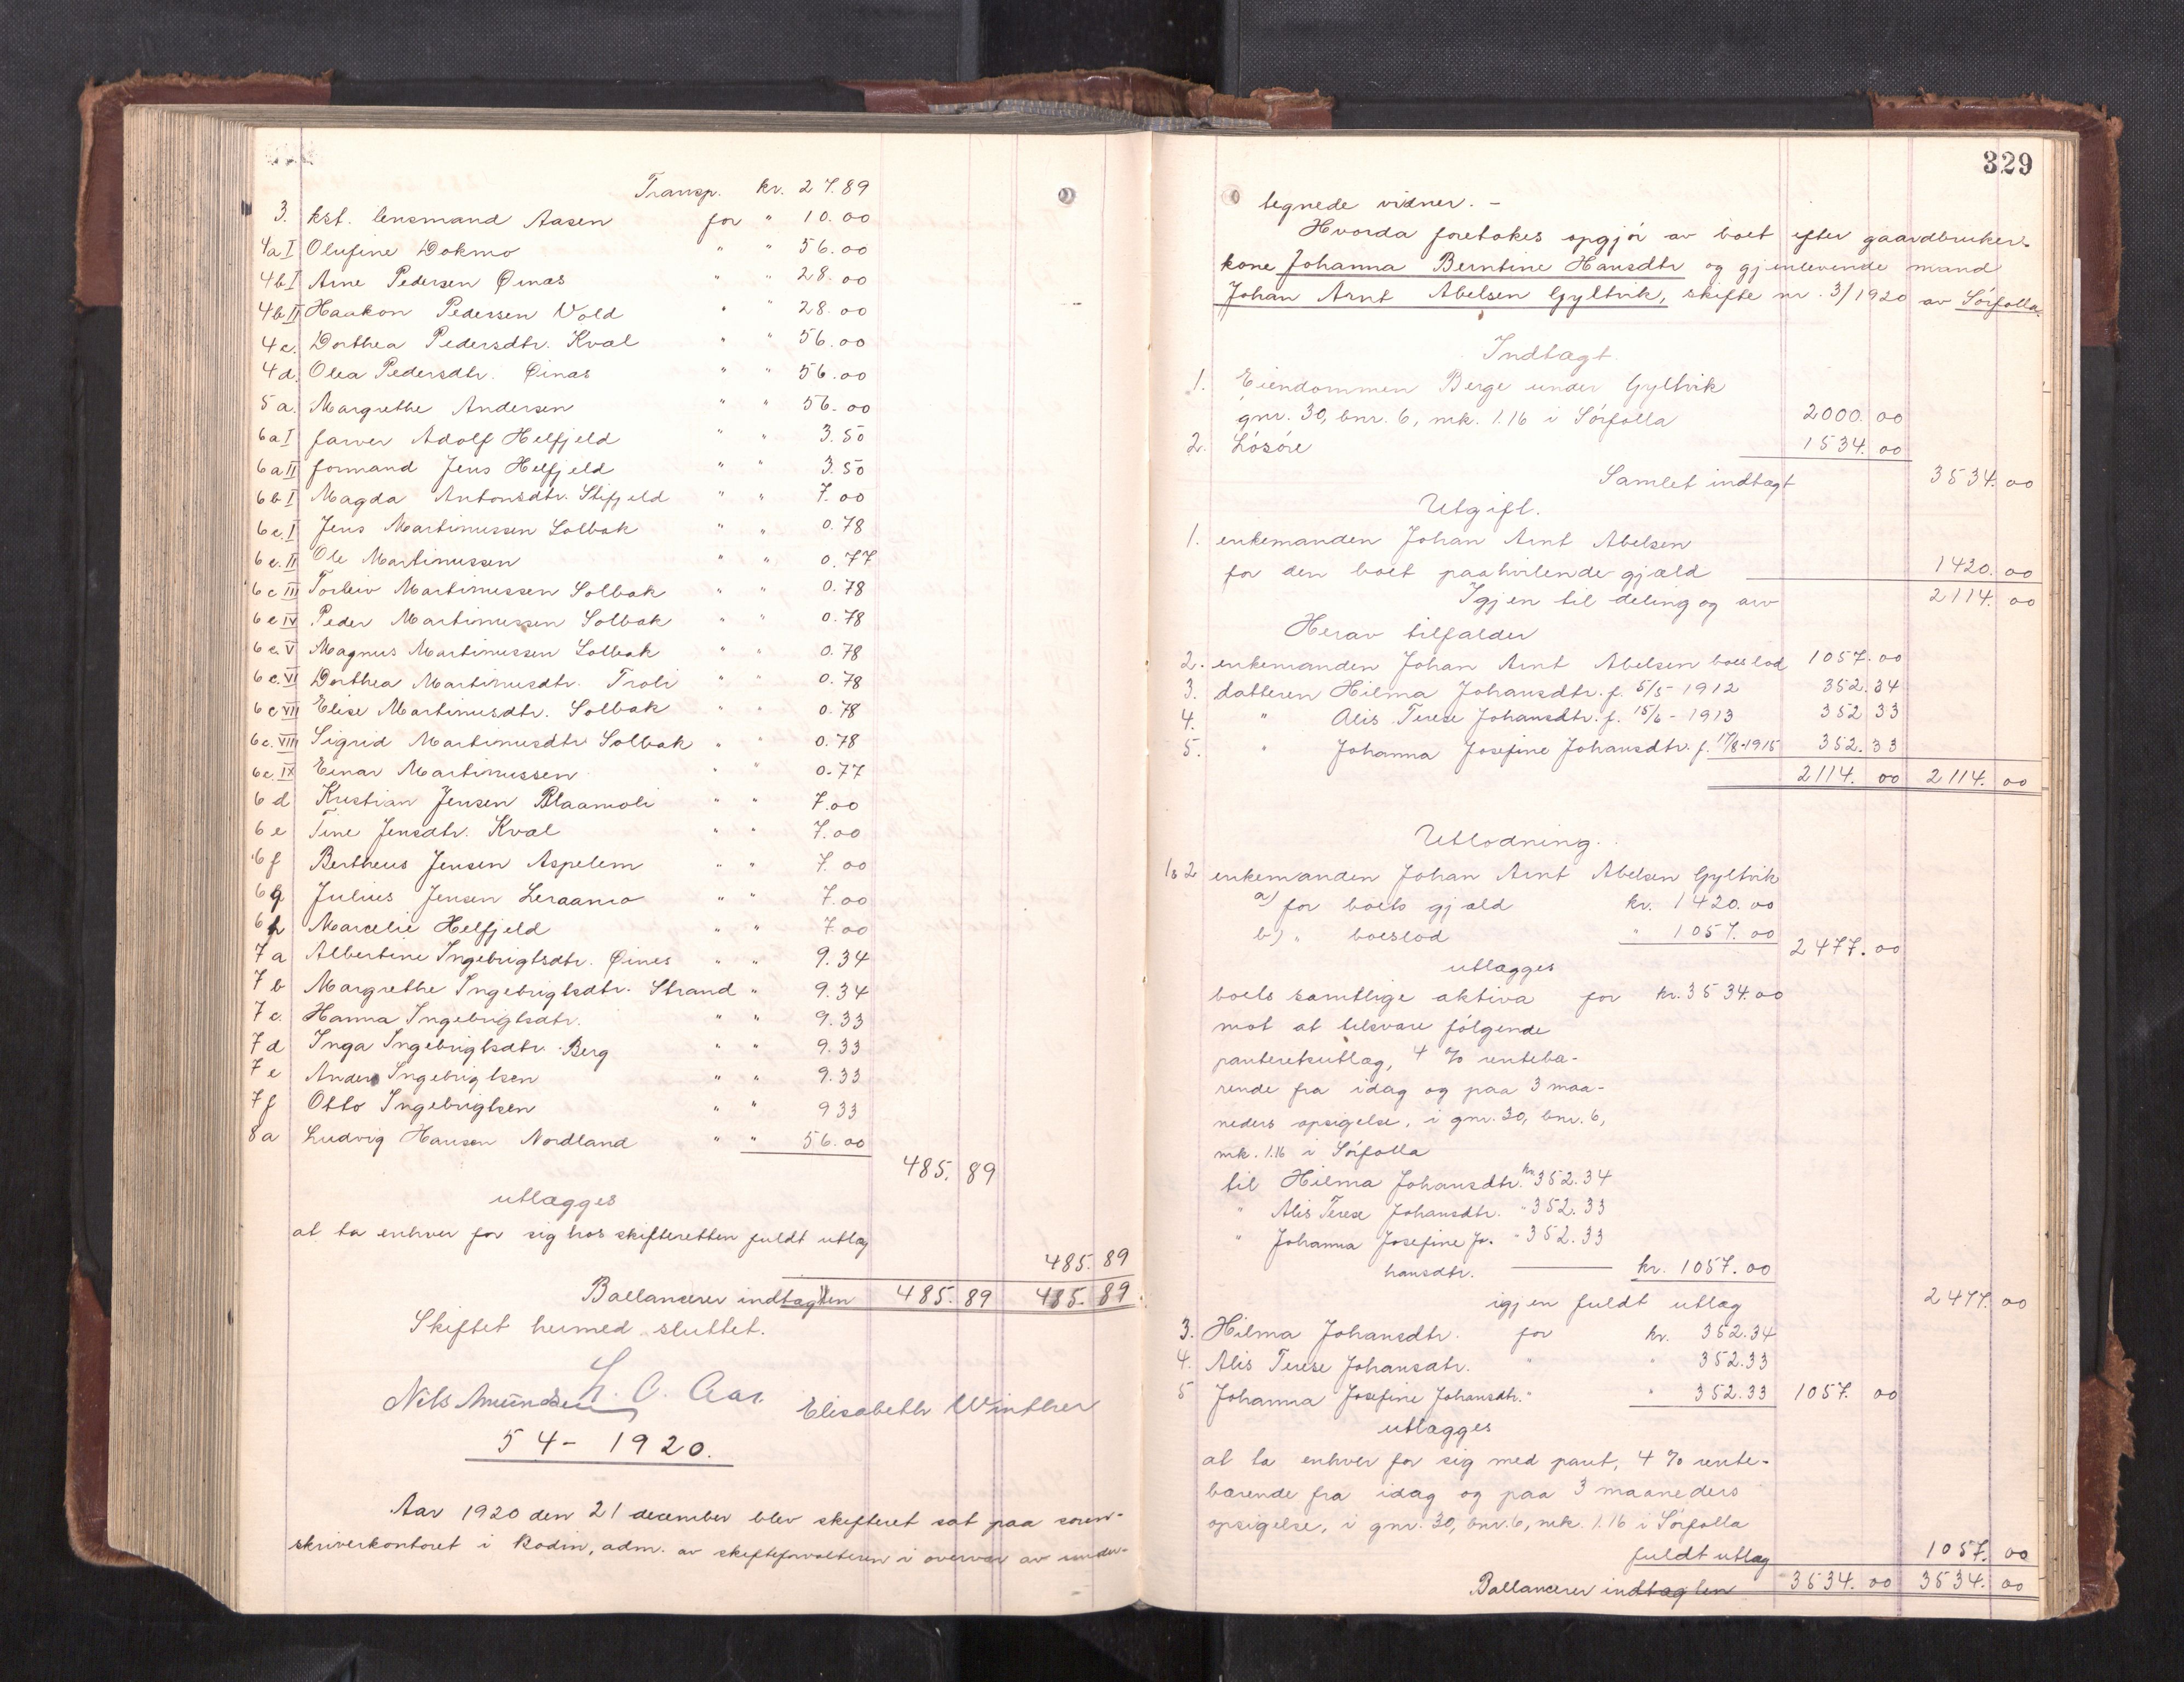 Transp. kr. 27.89
3. kst. lensmand Aasen for " 10.00
4a I Olufine Dokmo " " 56.00
4b I Arne Pedersen Øinæs " " 28.00
4b II Haakon Pedersen Vold " " 28.00
4c. Dorthea Pedersdtr. Kval " " 56.00
4d. Olea Pedersdtr. Øinæs " " 56.00
5a. Margrethe Andersen " " 56.00
6a I farver Adolf Helfjeld " " 3.50
6a II formand Jens Helfjeld " " 3.50
6b I Magda Antonsdtr. Slifjeld " " 7.00
6c. I Jens Martinussen Solbak " " 0.78
6c. II Ole Martinussen " " 0.77
6c III Torleiv Martinussen Solbak " " 0.78
6c IV Peder Martinussen Solbak " " 0.78
6c. V Magnus Martinussen Solbak " " 0.78
6c. VI Dorthea Martinusdtr. Troli " " 0.78
6c VII Elise Martinusdtr. Solbak " " 0.78
6c. VIII Sigrid Martinusdtr Solbak " " 0.78
6c. IX Einar Martinussen " " 0.77
6d Kristian Jensen Blaamoli " " 7.00
6e Tine Jensdtr. Kval " " 7.00
6f Bertheus Jensen Aspelem " " 7.00
6g Julius Jensen Leraamo " " 7.00
6h Marcelie Helfjeld " " 7.00
7a Albertine Ingebrigtsdtr. Øines " " 9.34
7b Margrethe Ingebrigtsdtr. Strand " 9.34
7c. Hanna Ingebrigtsdtr. " " 9.33
7d Inga Ingebrigtsdtr. Berg " " 9.33
7e Anders Ingebrigtsen " " 9.33
7f Otto Ingebrigtsen " " 9 33
8a Ludvig Hansen Nordland " " 56.00
485. 89
utlægges
at ta enhver for sig hos skifteretten fuldt utlæg
485. 89
Ballancerer indtægten 485. 89 485. 89
Skiftet hermed sluttet.
L. C. Aar.
Nils Amundsen Elisabeth Winther
54 - 1920.
Aar 1920 den 21 december blev skifteret sat paa soren-
skriverkontoret i Bodin, adm. av skifteforvalteren i overvær av under-
329
tegnede vidner. -
Hvorda foretokes opgjör av boet efter gaardbruker-
kone Johanna Berntine Hansdtr og gjenlevende mand
Johan Arnt Abelsen Gyltvik, skifte nr. 3/1920 av Sörfolla.
Indtægt.
1. Eiendommen Berge under Gyltvik
gnr. 30, bnr. 6, mk. 1.16 i Sörfolla 2000. 00
2. Lösöre 1534. 00
Samlet indtægt 3534. 00
Utgift.
1. enkemanden Johan Arnt Abelsen
for den boet paahvilende gjæld 1420. 00
Igjen til deling og arv 2114. 00
Herav tilfalder
2. enkemanden Johan Arnt Abelsen boeslod 1057. 00
3. datteren Hilma Johansdtr. f. 5/5 - 1912 352. 34
4. " Alis Terese Johansdtr. f. 15/6 - 1913 352 33
5. " Johanna Josefine Johansdtr. f. 17/8-1915 352. 33
2114. 00 2114. 00
Utlodning.
1 & 2 enkemanden Johan Arnt Abelsen Gyltvik
a) for boets gjæld kr. 1420.00
b) " boeslod " 1057.00 2477. 00
utlægges
boets samtlige aktiva for kr. 3534.00
mot at tilsvare fölgende
panteretsutlæg, 4 % renteba-
rende fra idag og paa 3 maa-
neders opsigelse, i gnr. 30, bnr. 6,
mk. 1.16 i Sörfolla
til Hilma Johansdtr. kr. 352.34
" Alis Terese Johansdtr. " 352.33
" Johanna Josefine Jo- " 352.33
hansdtr. kr. 1057.00
igjen fuldt utlæg 2477. 00
3. Hilma Johansdtr. for kr. 352.34
4. Alis Terese Johansdtr. " " 352.33
5 Johanna Josefine Johansdtr. " " 352.33 1057. 00
utlægges
at ta enhver for sig med pant, 4 % rente-
bærende fra idag og paa 3 maaneders
opsigelse, i gnr. 30, bnr. 6, mk. 1.16 i Sörfolla
fuldt utlæg 1057. 00
Ballancerer indtægten 3534. 00 3534. 00